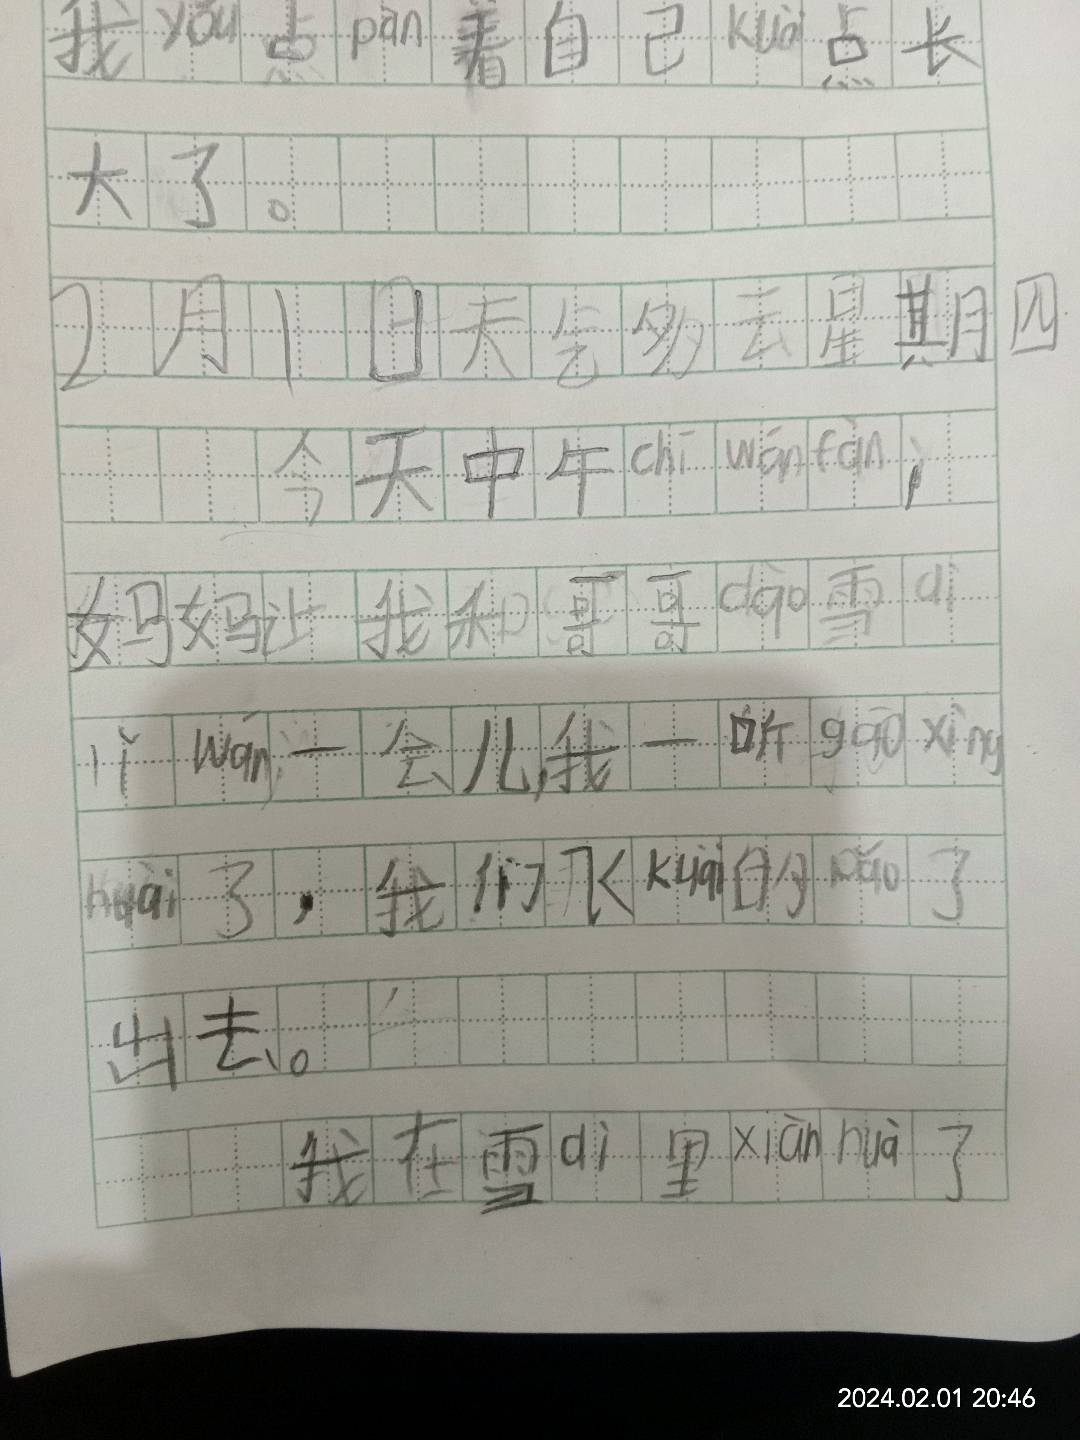 我 yǒu 点 pàn 着自己 kuài 点长
大了。
2月1日天气多云星期四
今天中午 chī wán fàn，
妈妈让我和哥哥 dào 雪 dì
lǐ wán 一会儿，我一听 gāo xìng
huài 了，我们飞 kuài 的 pǎo 了
出去。
我在雪 dì 里 xiàn huà 了
2024.02.01 20:46